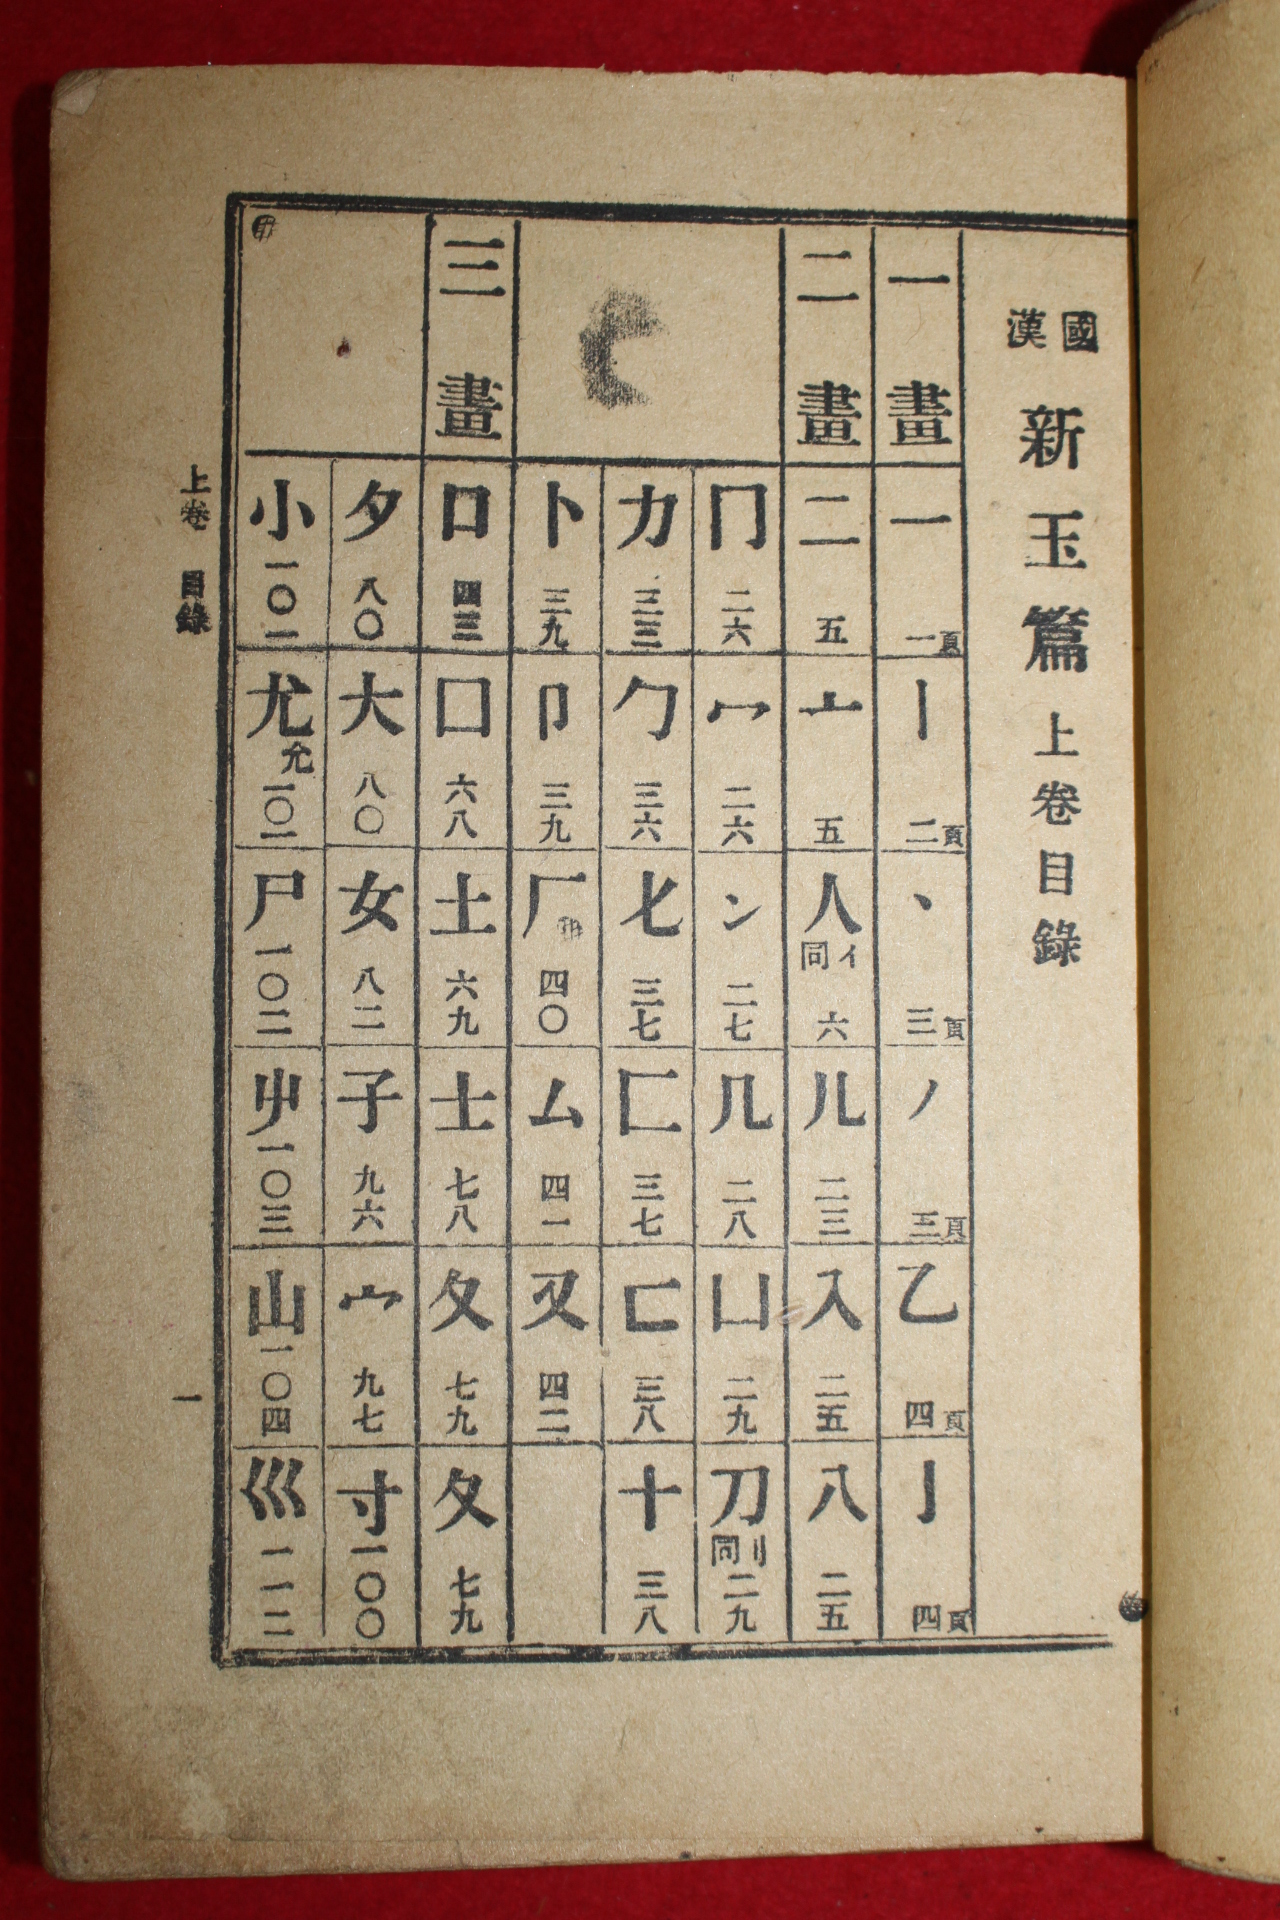 國漢 新玉篇 上卷目錄
一畫 一 一頁 丨 二頁 丶 三頁 丿 三頁 乙 四頁 亅 四頁
二畫 二 五 亠 五 人 亻同 六 儿 二三 入 二五 八 二五
冂 二六 冖 二六 冫 二七 几 二八 凵 二九 刀 刂同 二九
力 三三 勹 三六 匕 三七 匚 三七 匸 三八 十 三八
卜 三九 卩 三九 厂 四〇 厶 四一 又 四二
三畫 口 四三 囗 六八 土 六九 士 七八 夂 七九 夊 七九
夕 八〇 大 八〇 女 八二 子 九六 宀 九七 寸 一〇〇
小 一〇二 尢 尣 一〇二 尸 一〇二 屮 一〇三 山 一〇四 巛 一一二
上卷 目錄 一